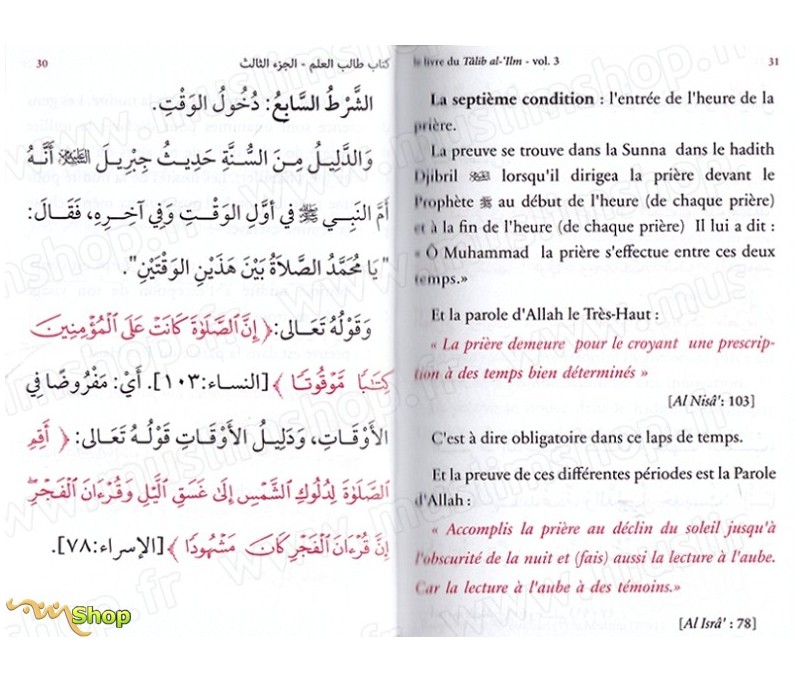 30
كتاب طالب العلم - الجزء الثالث
الشَّرْطُ السَّابِعُ: دُخُولُ الوَقْتِ.
وَالدَّلِيلُ مِنَ السُّنَّةِ حَدِيثُ جِبْرِيلَ أَنَّهُ
أَمَّ النَّبِي ﷺ في أَوَّلِ الوَقْتِ وَفِي آخِرِهِ، فَقَالَ:
"يَا مُحَمَّدُ الصَّلَاةُ بَيْنَ هَذَيْنِ الوَقْتَيْنِ".
وَقَوْلُهُ تَعَالَى: ﴿ إِنَّ ٱلصَّلَوٰةَ كَانَتْ عَلَى ٱلْمُؤْمِنِينَ
كِتَٰبًا مَّوْقُوتًا ﴾ [النساء:١٠٣]. أَيْ: مَفْرُوضًا فِي
الأَوْقَاتِ، وَدَلِيلُ الأَوْقَاتِ قَوْلُهُ تَعَالَى: ﴿ أَقِمِ
ٱلصَّلَوٰةَ لِدُلُوكِ ٱلشَّمْسِ إِلَىٰ غَسَقِ ٱلَّيْلِ وَقُرْءَانَ ٱلْفَجْرِ ۖ
إِنَّ قُرْءَانَ ٱلْفَجْرِ كَانَ مَشْهُودًا ﴾ [الإسراء:٧٨].
le livre du Tâlib al-'Ilm - vol. 3
31
La septième condition : l'entrée de l'heure de la
prière.
La preuve se trouve dans la Sunna dans le hadith
Djibril lorsqu'il dirigea la prière devant le
Prophète ﷺ au début de l'heure (de chaque prière)
et à la fin de l'heure (de chaque prière) Il lui a dit :
« Ô Muhammad la prière s'effectue entre ces deux
temps.»
Et la parole d'Allah le Très-Haut :
« La prière demeure pour le croyant une prescrip-
tion à des temps bien déterminés »
[Al Nisâ': 103]
C'est à dire obligatoire dans ce laps de temps.
Et la preuve de ces différentes périodes est la Parole
d'Allah :
« Accomplis la prière au déclin du soleil jusqu'à
l'obscurité de la nuit et (fais) aussi la lecture à l'aube.
Car la lecture à l'aube a des témoins.»
[Al Isrâ' : 78]
Shop
www.muslimshop.fr